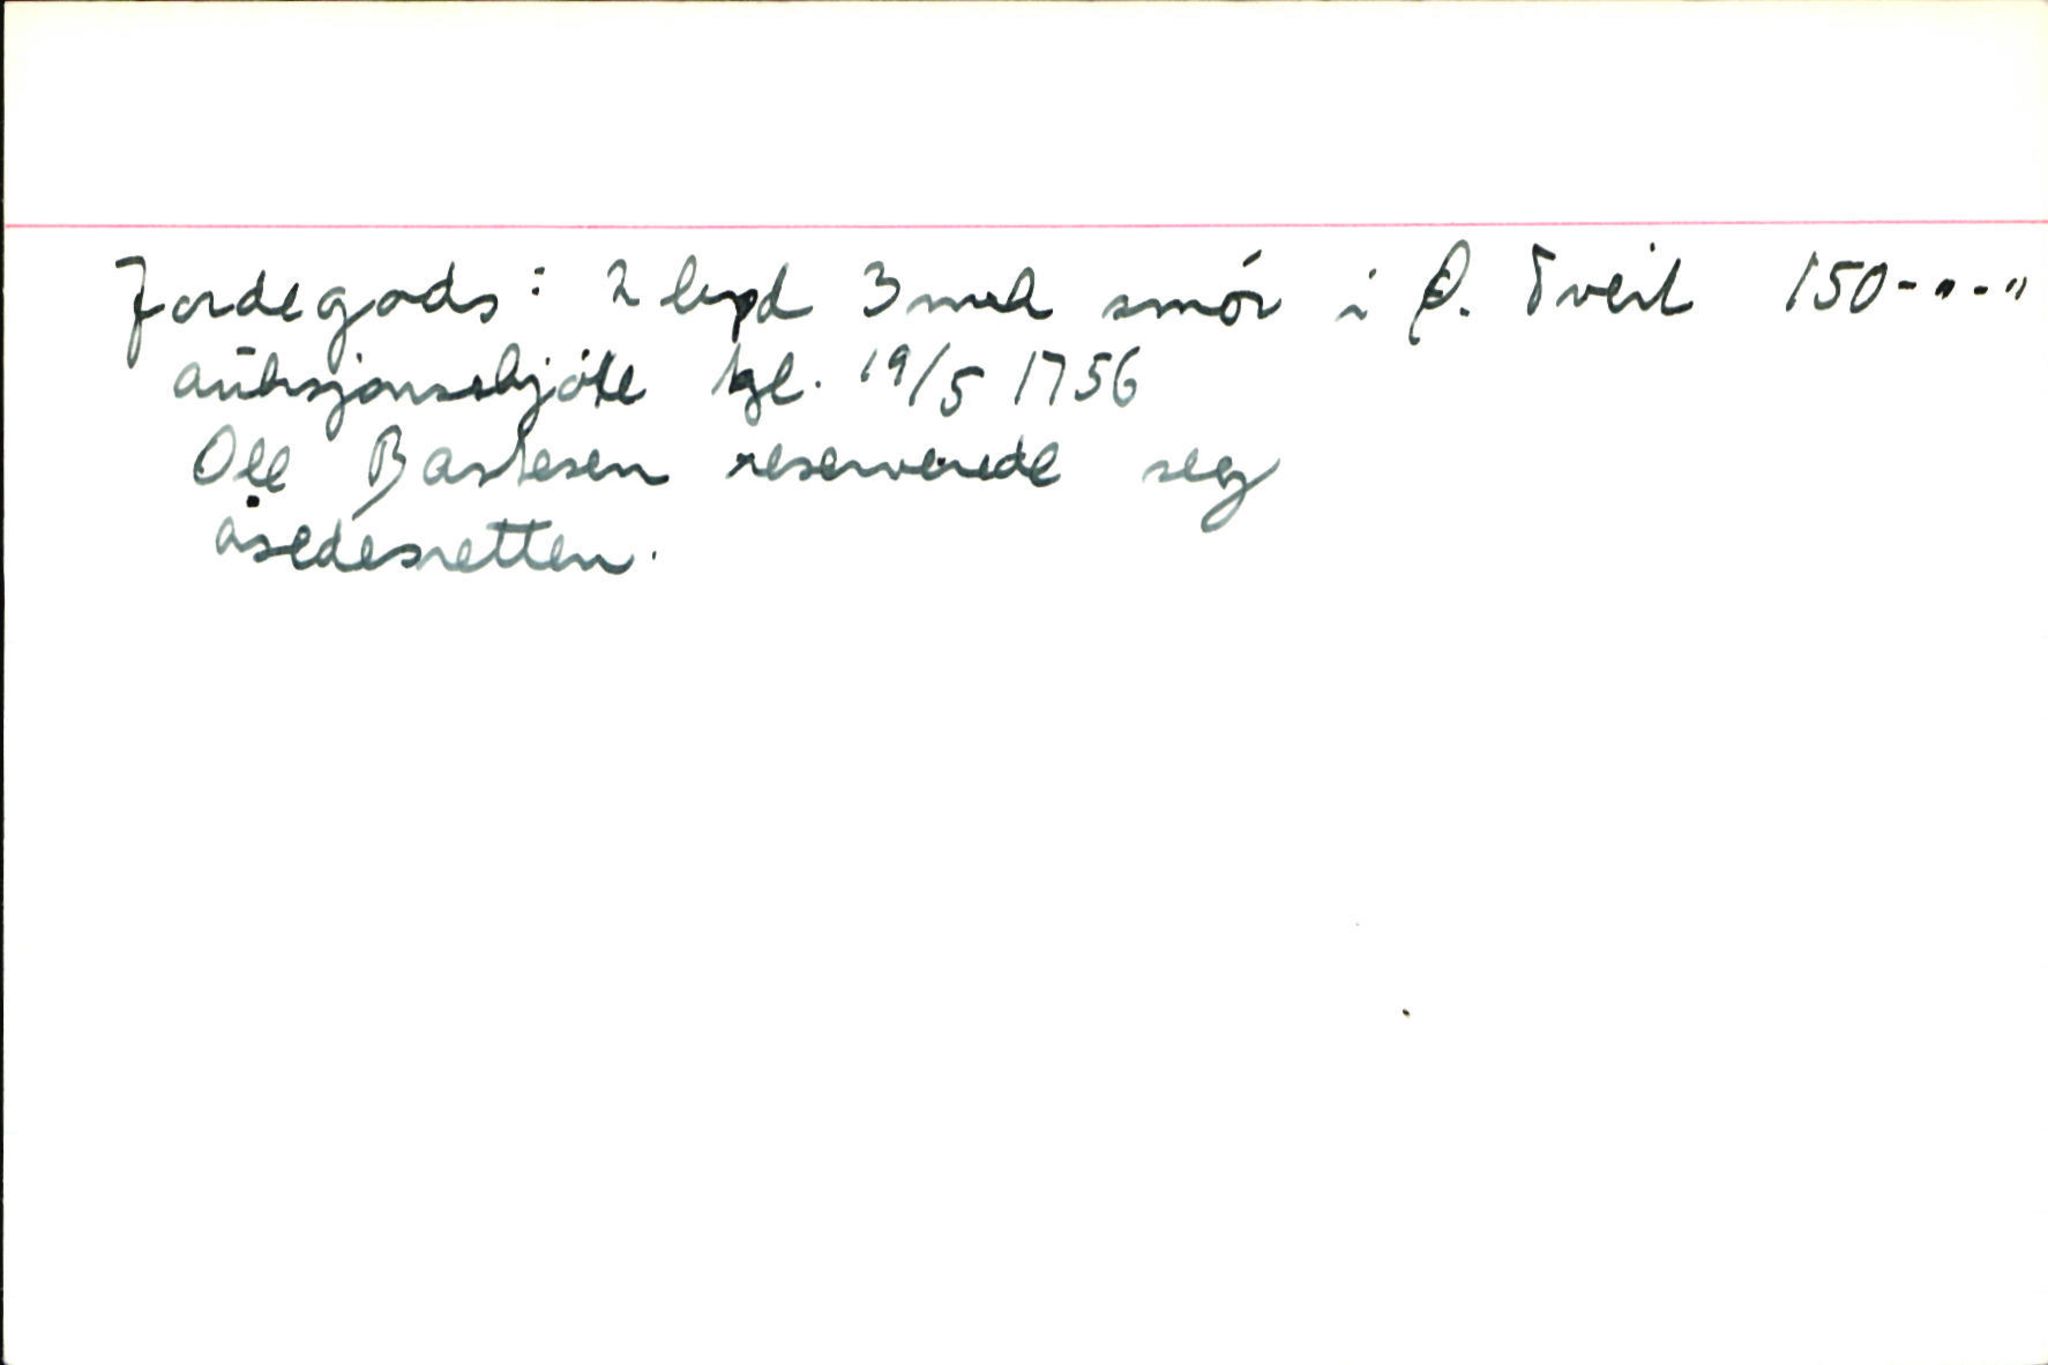 Jordegods: 2 lispd 3 mrk smör i Ø. Tveit 150-"-"
auksjonsskjöte tgl. 19/5 1756
Ole Bastesen reserverede seg
åsedesretten.